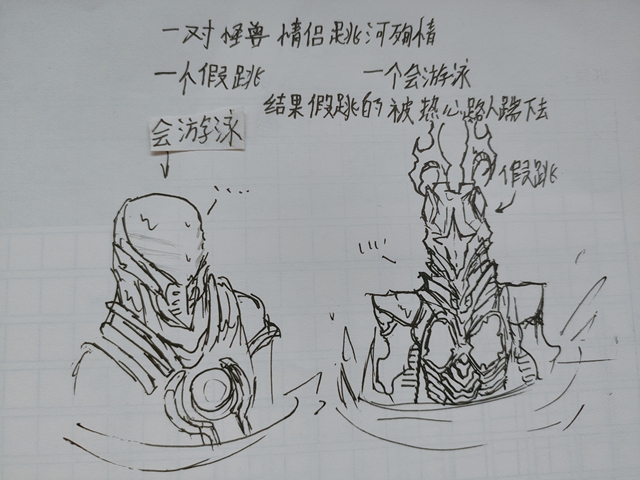 一对怪兽情侣跳河殉情
一个假跳 一个会游泳
结果假跳的被热心路人踹下去
会游泳
假跳